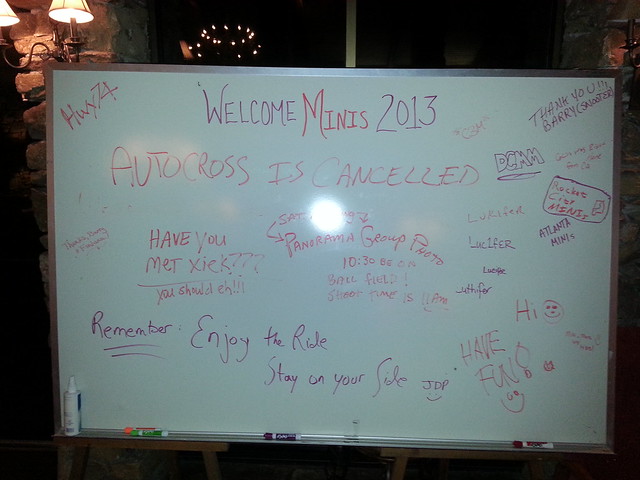 Hwy74
WELCOME MINIS 2013
THANK YOU!!!
BARRY (SMOOTER)
AUTOCROSS IS CANCELLED
DCMM
ROCKET
CITY
MINIS
ATLANTA
MINIS
LUCIFER
LUCIFER
HAVE YOU
MET XIEK???
you should eh!!!
PANORAMA GROUP PHOTO
10:30 BE ON
BALL FIELD!
SHOOT TIME IS 11AM
Hi
Remember: Enjoy the Ride
Stay on your Side JDP
HAVE
FUN!